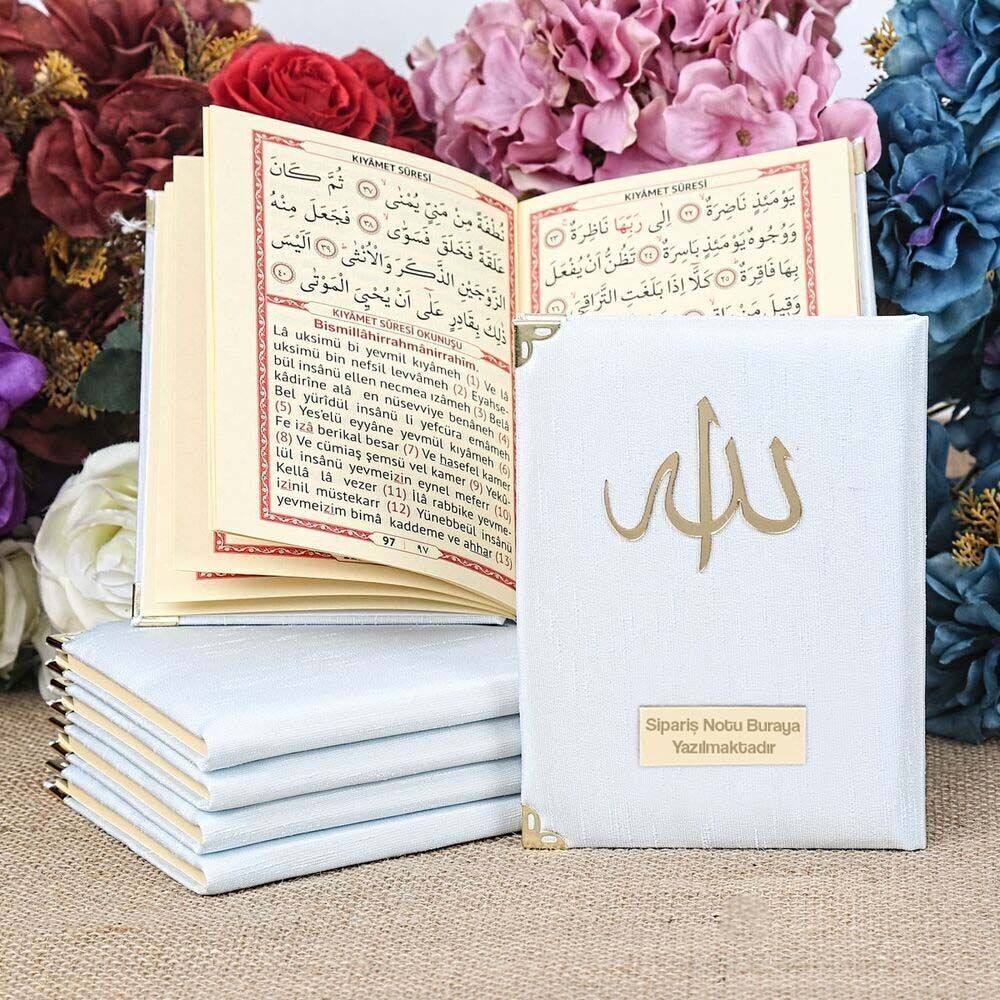 KIYÂMET SÛRESİ
نُطْفَةً مِنْ مَنِيٍّ يُمْنٰىۙ ﴿٣٧﴾ ثُمَّ كَانَ
عَلَقَةً فَخَلَقَ فَسَوّٰىۙ ﴿٣٨﴾ فَجَعَلَ مِنْهُ
الزَّوْجَيْنِ الذَّكَرَ وَالْاُنْثٰىۜ ﴿٣٩﴾ اَلَيْسَ
ذٰلِكَ بِقَادِرٍ عَلٰٓى اَنْ يُحْيِيَ الْمَوْتٰى ﴿٤٠﴾
KIYÂMET SÛRESİ OKUNUŞU
Bismillâhirrahmânirrahim.
Lâ uksimü bi yevmil kıyâmeh (1) Ve lâ
uksimü bin nefsil levvâmeh (2) Eyahse-
bül insânü ellen necmea ızâmeh (3) Belâ
kâdirîne alâ en nüsevviye benâneh (4)
Bel yürîdül insânü li yefcüra emâmeh
(5) Yes'elü eyyâne yevmül kıyâmeh (6)
Fe izâ berikal besar (7) Ve hasefel kamer
(8) Ve cümiaş şemsü vel kamer (9) Yekû-
lül insânü yevmeizin eynel meferr (10)
Kellâ lâ vezer (11) İlâ rabbike yevme-
izinil müstekarr (12) Yünebbeül insânü
yevmeizim bimâ kaddeme ve ahhar (13)
97 ٩٧
KIYÂMET SÛRESİ
يَوْمَئِذٍ نَاضِرَةٌۙ ﴿٢٢﴾ اِلٰى رَبِّهَا نَاظِرَةٌۚ ﴿٢٣﴾
وَوُجُوهٌ يَوْمَئِذٍ بَاسِرَةٌۙ ﴿٢٤﴾ تَظُنُّ اَنْ يُفْعَلَ
بِهَا فَاقِرَةٌۜ ﴿٢٥﴾ كَلَّٓا اِذَا بَلَغَتِ التَّرَاقِيَۙ ﴿٢٦﴾
وَقِيلَ مَنْ
الله
Sipariş Notu Buraya
Yazılmaktadır